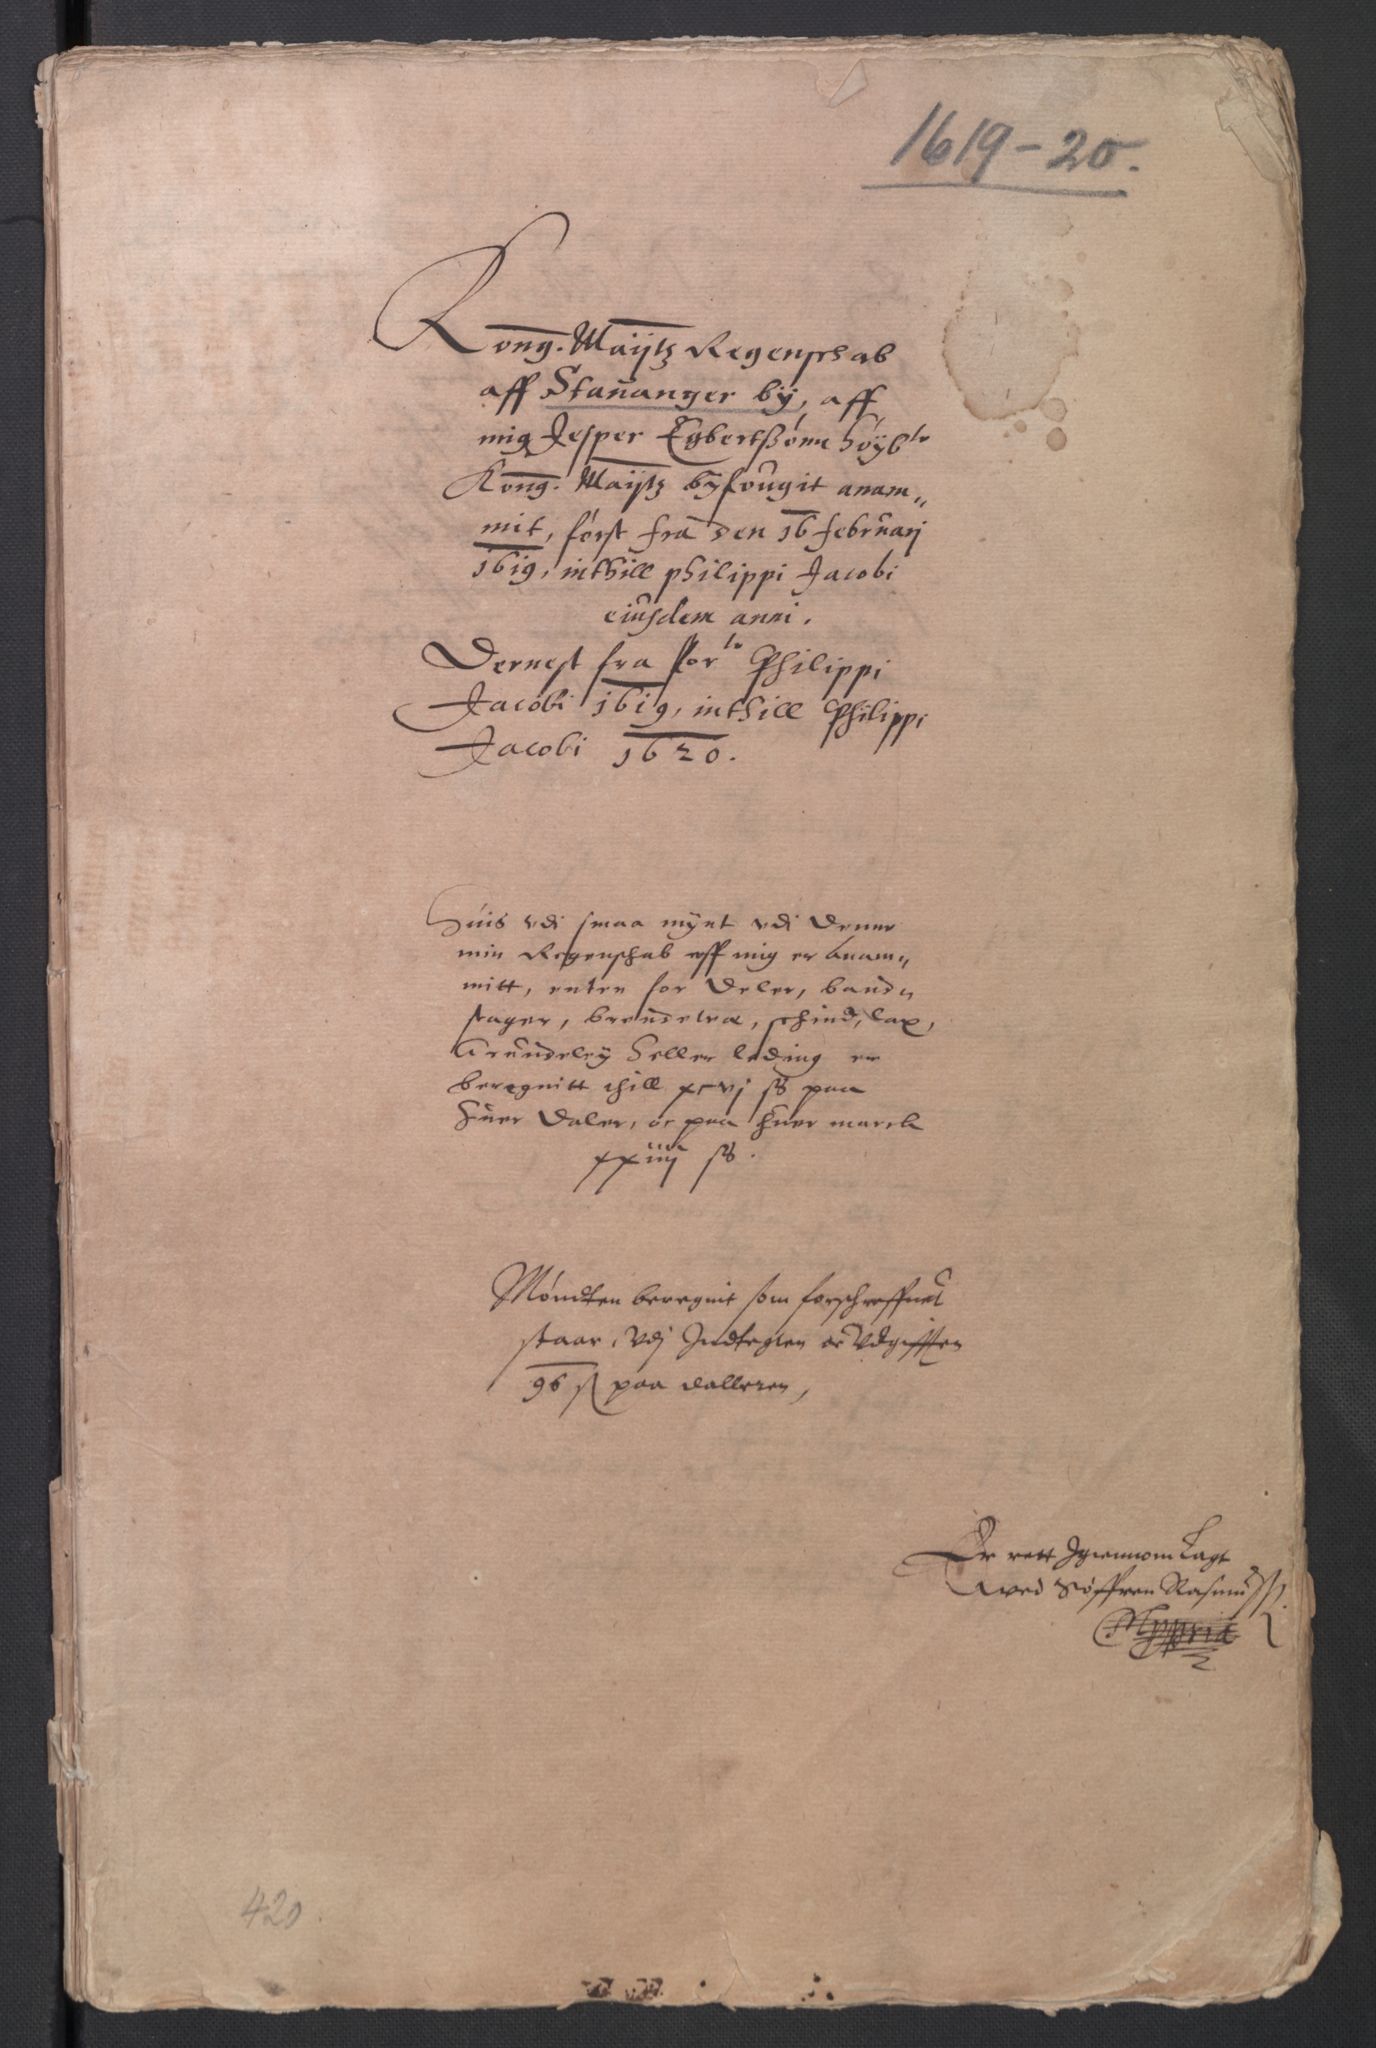 1619-20.
Kong. Maijtz Regenschab
aff Stauanger bÿ, aff
mig Jesper Egbertßønn høÿb^te
Kong. Maijtz bÿfougit anam„
mit, først fra den 16 februarj
1619, inthill philippi Jacobi
eiusdem anni.
Dernest fra for^te Philippi
Jacobi 1619, inthill Philippi
Jacobi 1620.
Huis vdi smaa mÿnt vdi denne
min Regenschab aff mig er Anam„
mitt, enten for Deler, band„
stager, brendeved, schind, lax,
Grundeleÿ heller leding er
beregnitt thill xcvj sß paa
huer Daler, oc paa huer marck
xxiiij sß.
Møndten beregnit som forschreffuet
staar, Vdj Indtegten oc Vdgifften
96 ß paa dalleren,
Er rett Igiennom Lagt
wed Søffren Rasmuss:
Mppria
420